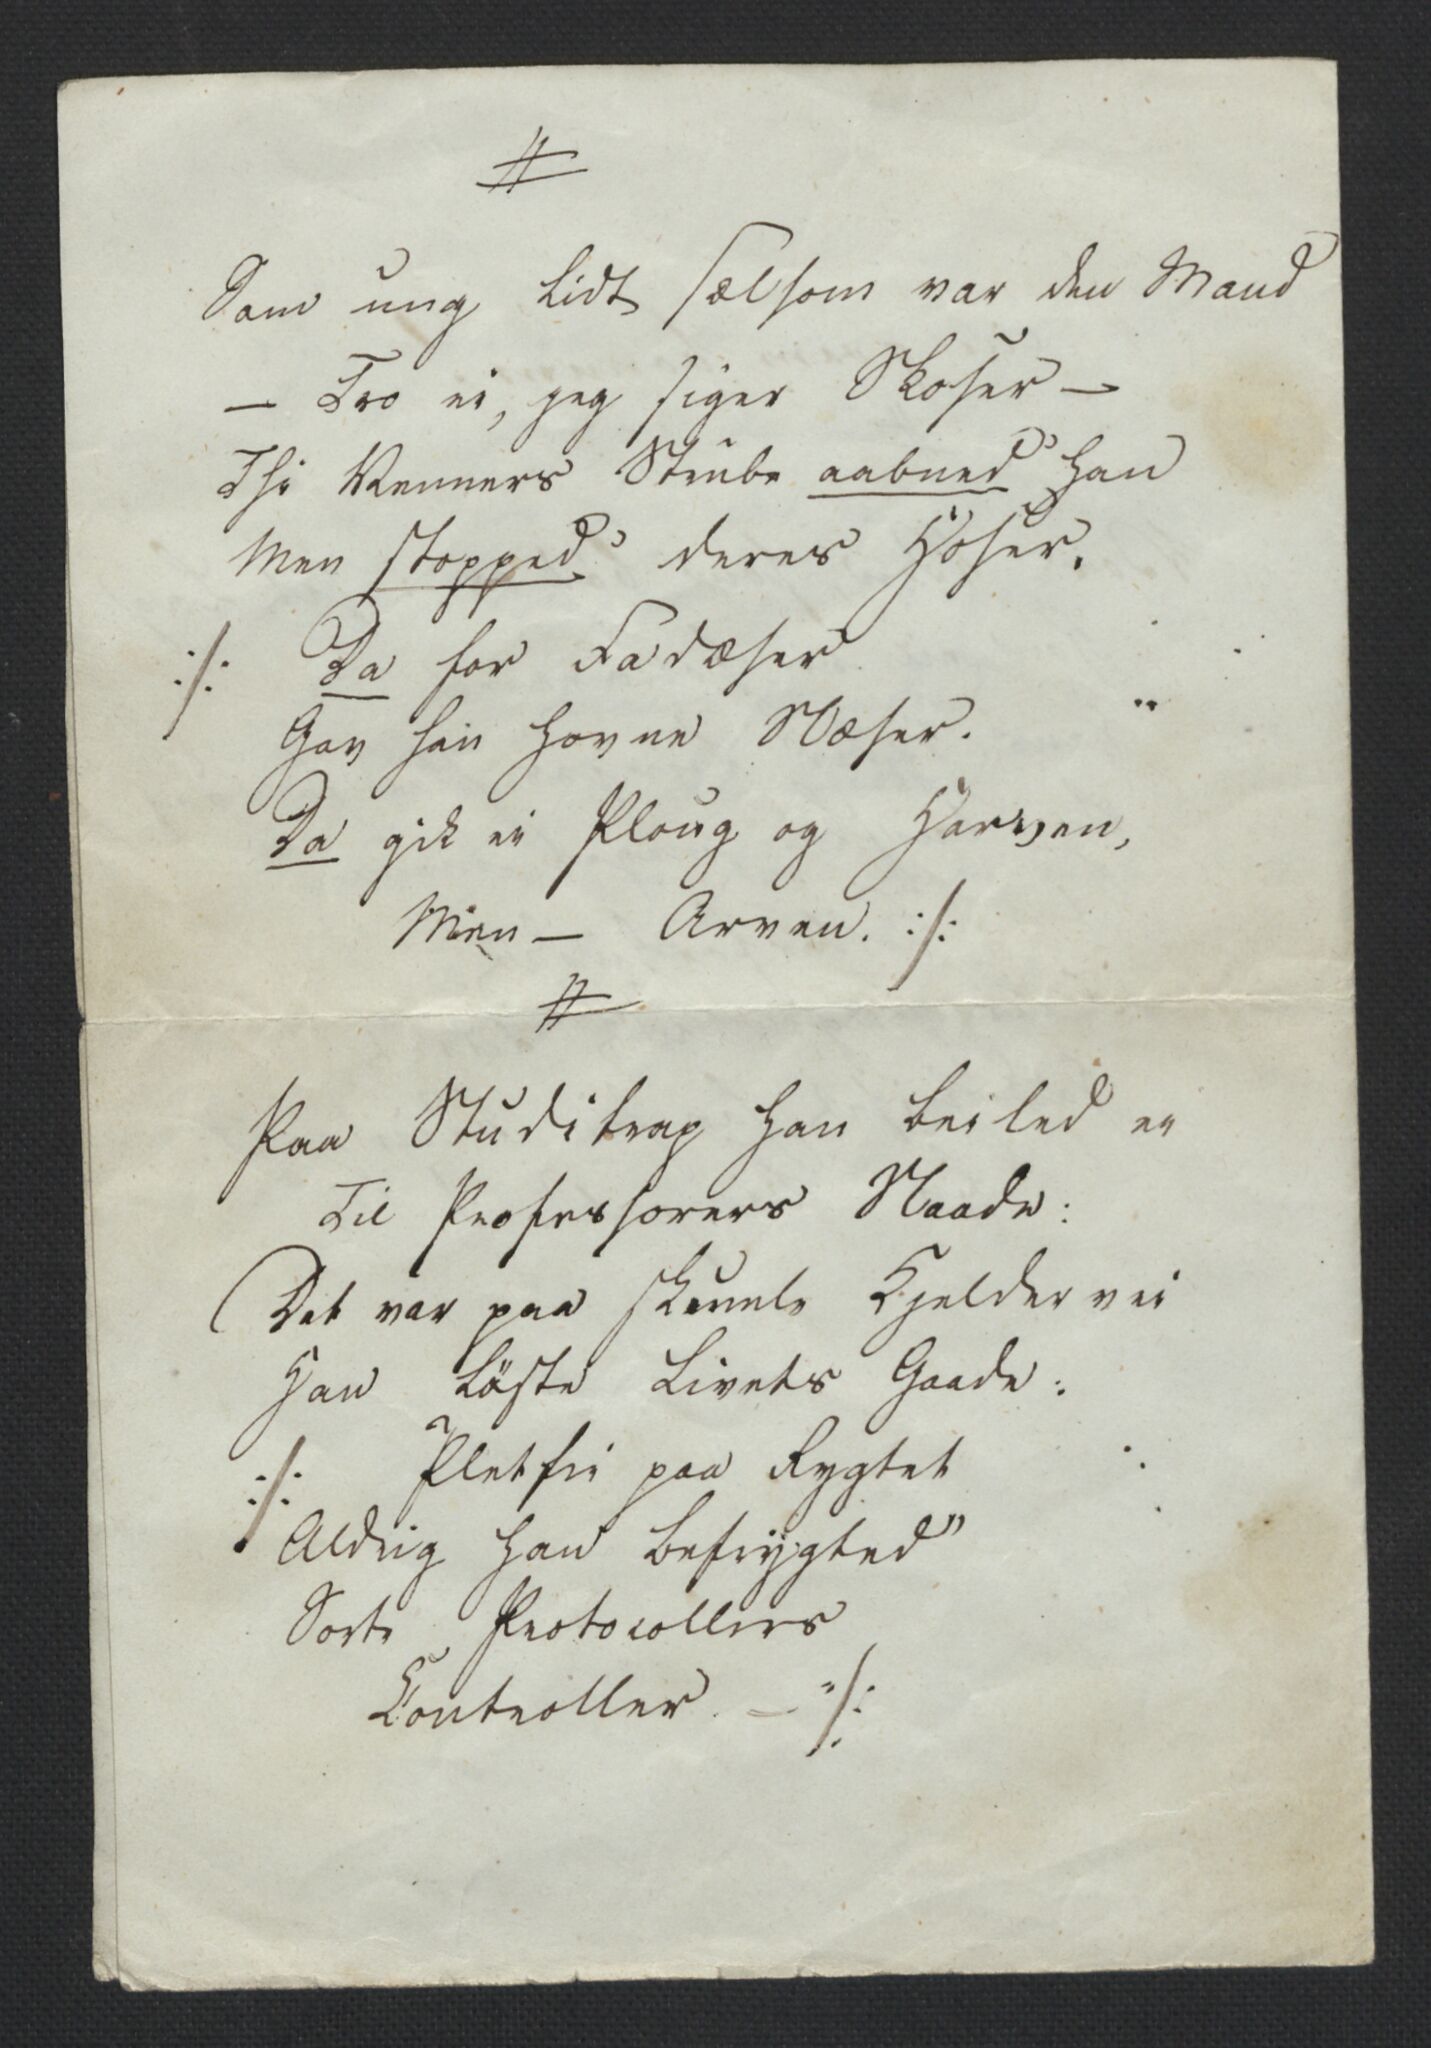 #
Som ung lidt sælsom var den Mand
— Tro ei, jeg siger Skoser —
Thi Venners Strube aabned' han
Men stopped' deres Hoser.
:/: Da for Fadæser
Gav han hovne Næser.
Da gik ei Ploug og Harven,
Men — Arven. :/:
#
Paa Studitrap han beiled ei
Til Professorers Naade:
Det var paa skumle Kjeldervei
Han löste Livets Gaade:
:/: Pletfri paa Rygtet
Aldrig han befrygted"
Sorte Protocollers
Controller. — :/: